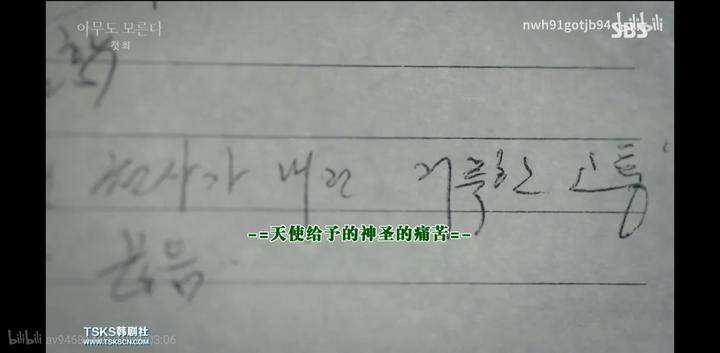 아무도 모른다
첫 회
nwh91gotjb94
bilibili
SBS
천사가 내린 거룩한 고통
-=天使给予的神圣的痛苦=-
복음
TSKS韩剧社
WWW.TSKSCN.COM
bilibili av9468
3:06